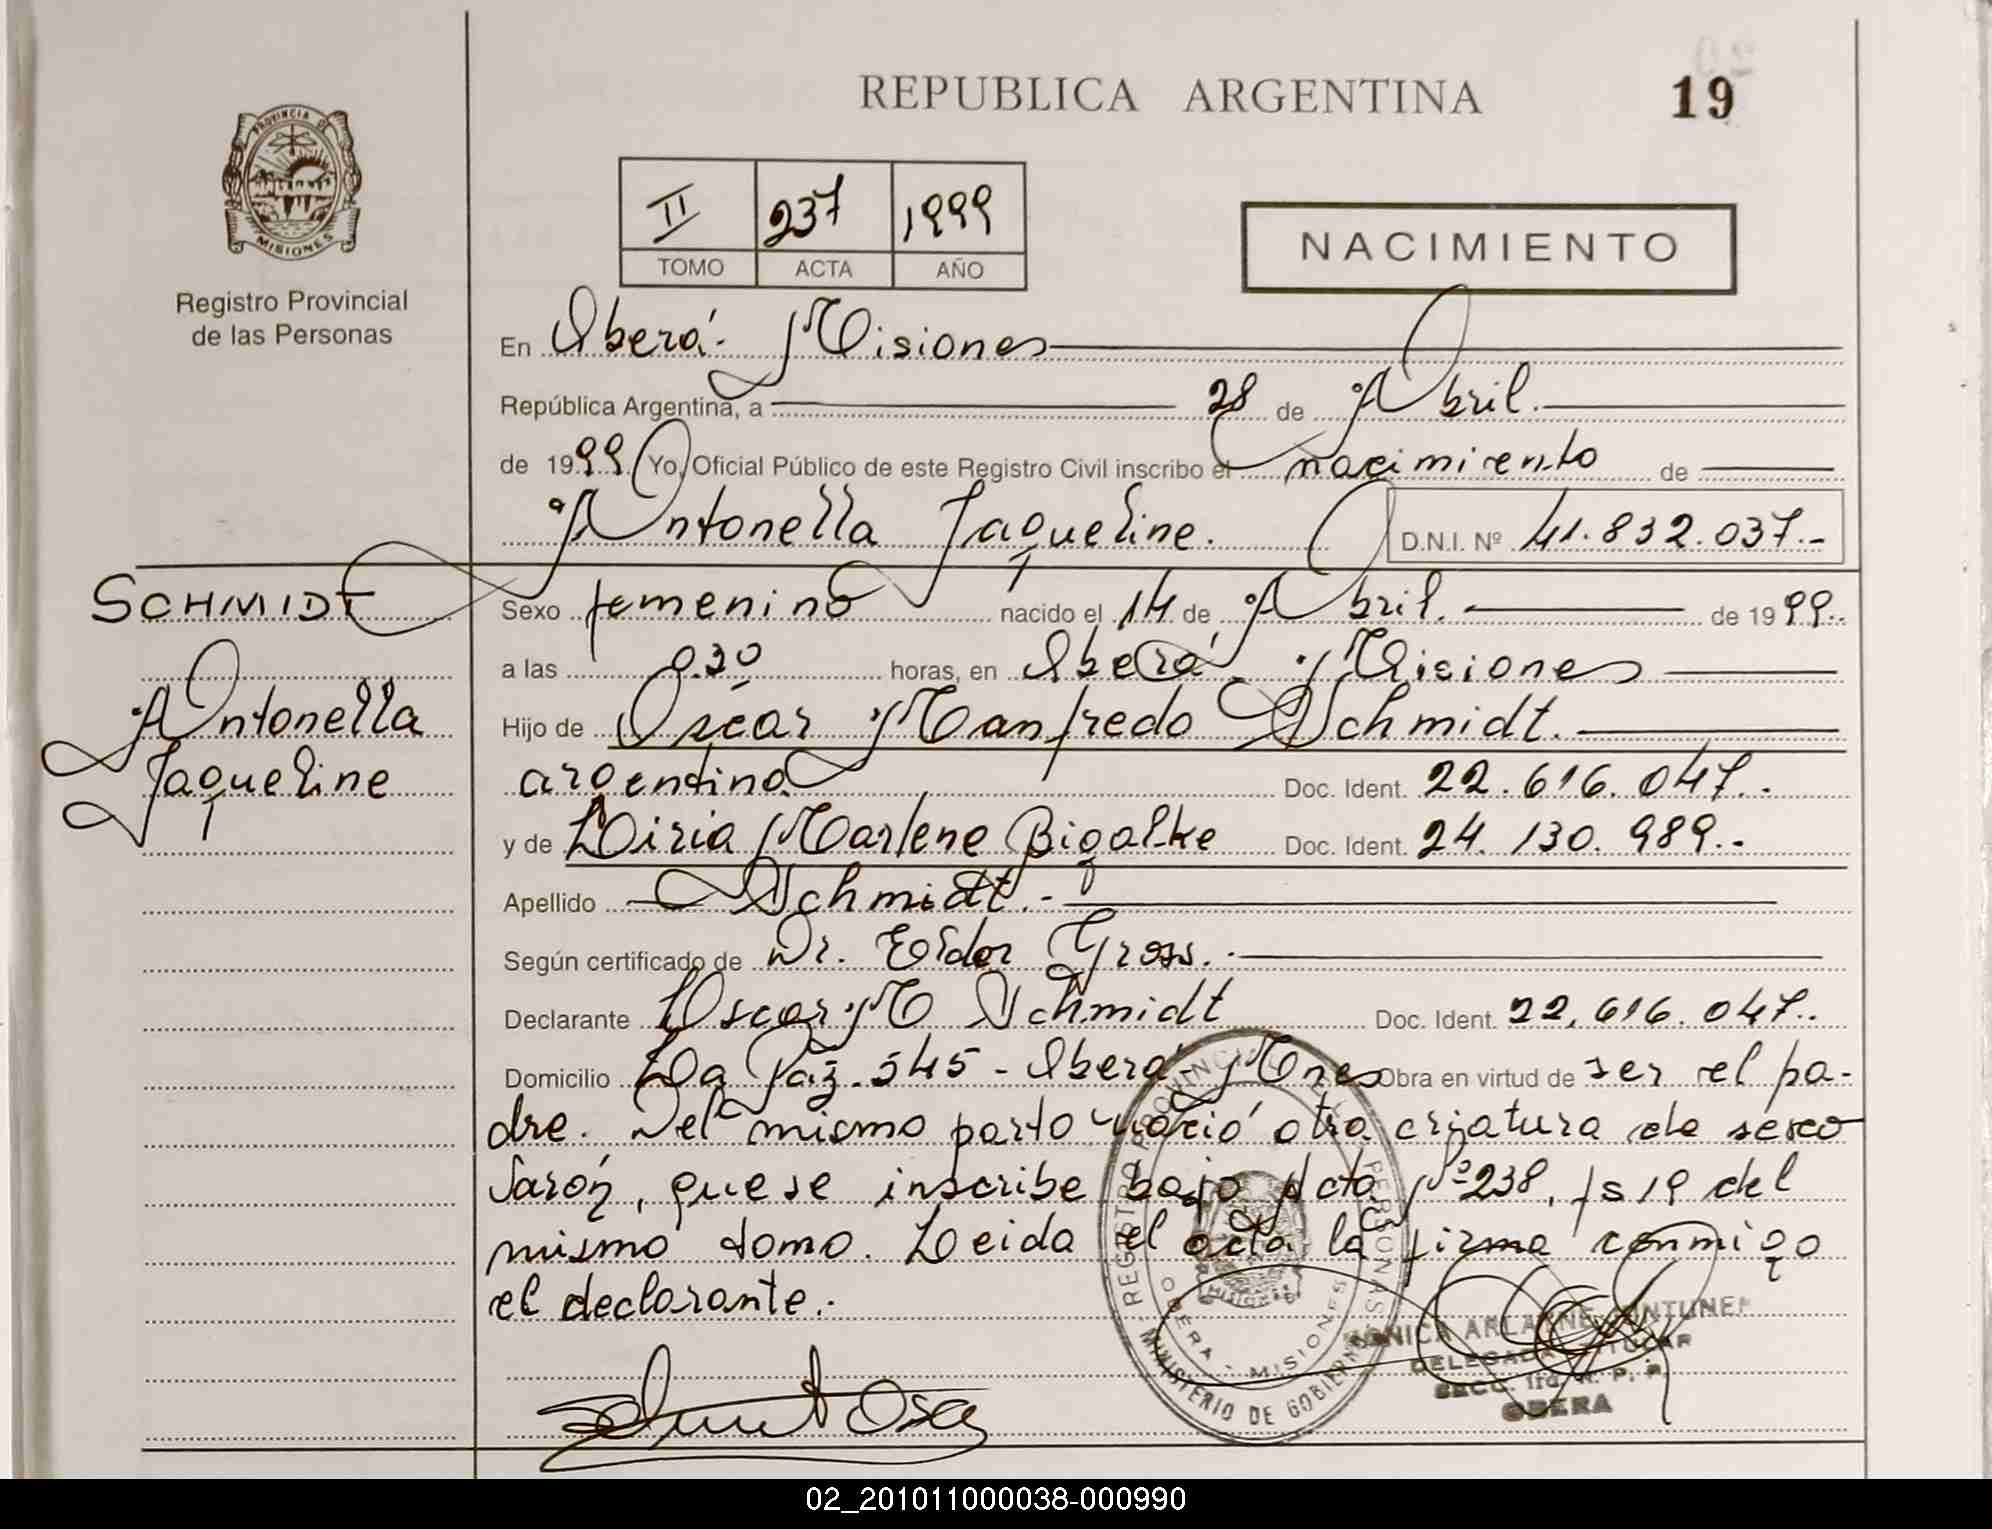 REPUBLICA ARGENTINA
19
PROVINCIA DE
MISIONES
Registro Provincial
de las Personas
II 237 1999
TOMO ACTA AÑO
NACIMIENTO
En Oberá - Misiones
República Argentina, a 28 de Abril.
de 1999. Yo, Oficial Público de este Registro Civil inscribo el nacimiento de
Antonella Jaqueline. D.N.I. Nº 41.832.037.-
SCHMIDT
Antonella
Jaqueline
Sexo femenino nacido el 14 de Abril. de 1999.
a las 0.30 horas, en Oberá, Misiones
Hijo de Oscar Manfredo Schmidt.
argentino. Doc. Ident. 22.616.047.-
y de Liria Marlene Bigalke Doc. Ident. 24.130.989.-
Apellido Schmidt.-
Según certificado de Dr. Eldor Gross.-
Declarante Oscar M Schmidt Doc. Ident. 22.616.047.-
Domicilio La Paz 545 - Oberá - Mnes Obra en virtud de ser el pa-
dre. Del mismo parto nació otra criatura de sexo
varón, que se inscribe bajo Acta Nº 238, fs 19 del
mismo tomo. Leida el acta la firma conmigo
el declarante.-
REGISTRO PROVINCIAL PERSONAS
MISIONES
OBERA - MISIONES
MINISTERIO DE GOBIERNO
DELEGADA TITULAR
SECC. 1ra. R. P. P.
OBERA
02_201011000038-000990